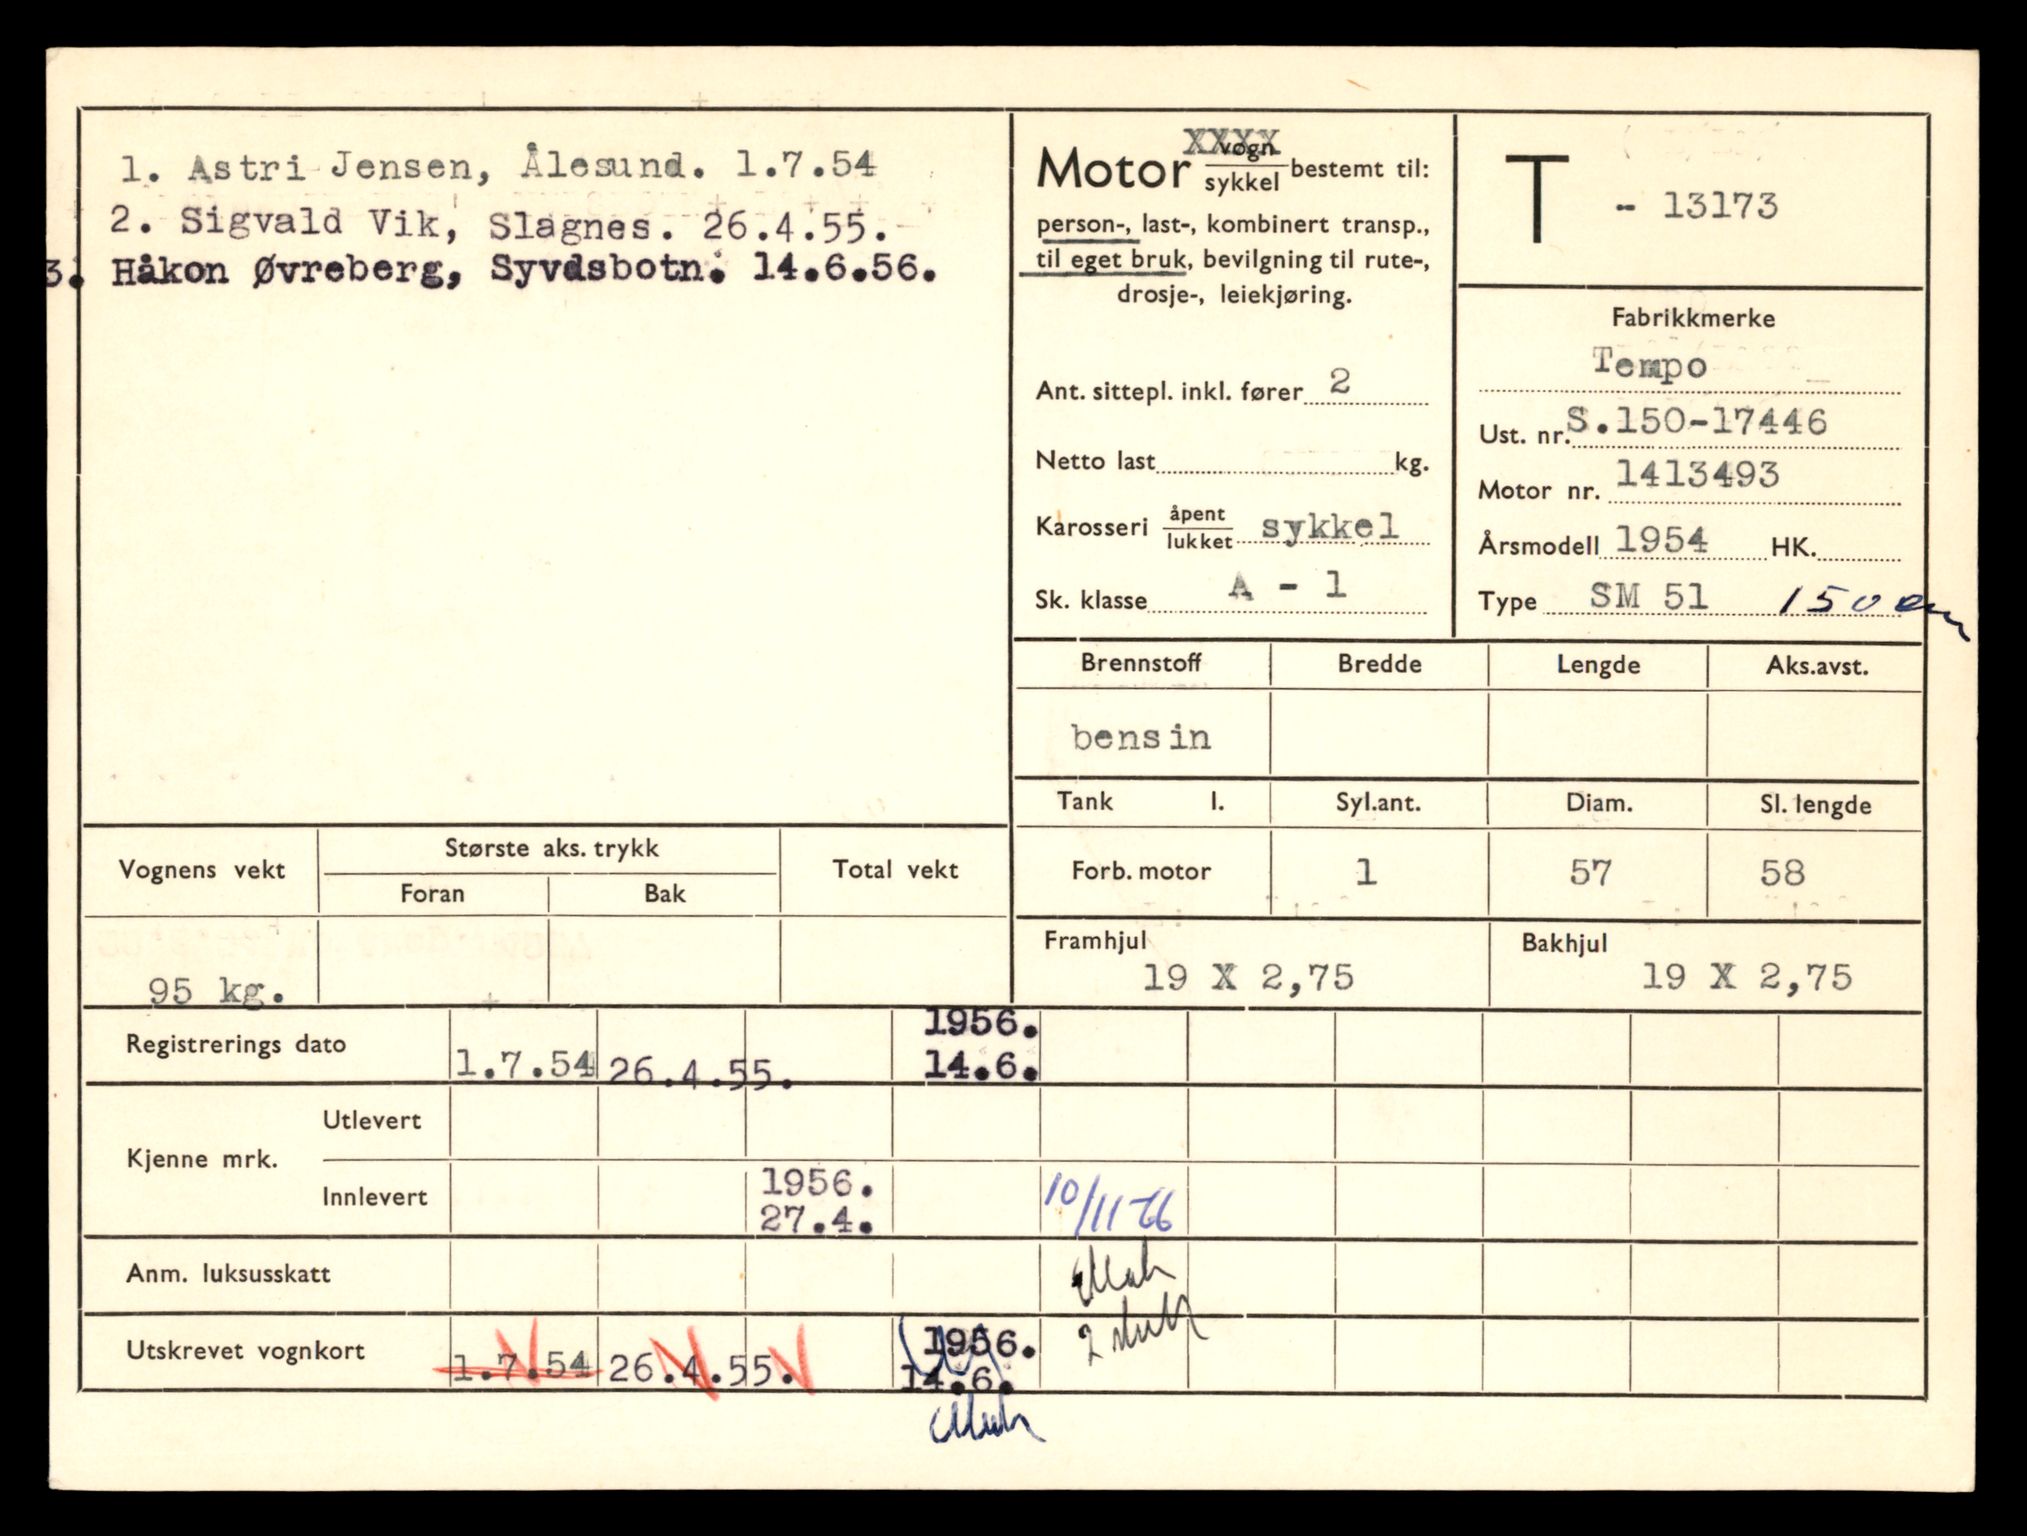 1. Astri Jensen, Ålesund. 1.7.54
2. Sigvald Vik, Slagnes. 26.4.55.
3. Håkon Øvreberg, Syvdsbotn. 14.6.56.
XXXX
Motor vogn/sykkel bestemt til:
person-, last-, kombinert transp.,
til eget bruk, bevilgning til rute-,
drosje-, leiekjøring.
Ant. sittepl. inkl. fører 2
Netto last kg.
Karosseri åpent/lukket sykkel
Sk. klasse A - 1
T - 13173
Fabrikkmerke
Tempo
Ust. nr. S.150-17446
Motor nr. 1413493
Årsmodell 1954 HK.
Type SM 51 150
Brennstoff Bredde Lengde Aks.avst.
bensin
Tank l. Syl.ant. Diam. Sl. lengde
Forb. motor 1 57 58
Framhjul Bakhjul
19 X 2,75 19 X 2,75
Vognens vekt Største aks. trykk Total vekt
Foran Bak
95 kg.
1956.
Registrerings dato 1.7.54 26.4.55. 14.6.
Kjenne mrk.
Utlevert
Innlevert 1956. 27.4. 10/11-66
Anm. luksusskatt
Utskrevet vognkort 1.7.54 26.4.55. 1956. 14.6.